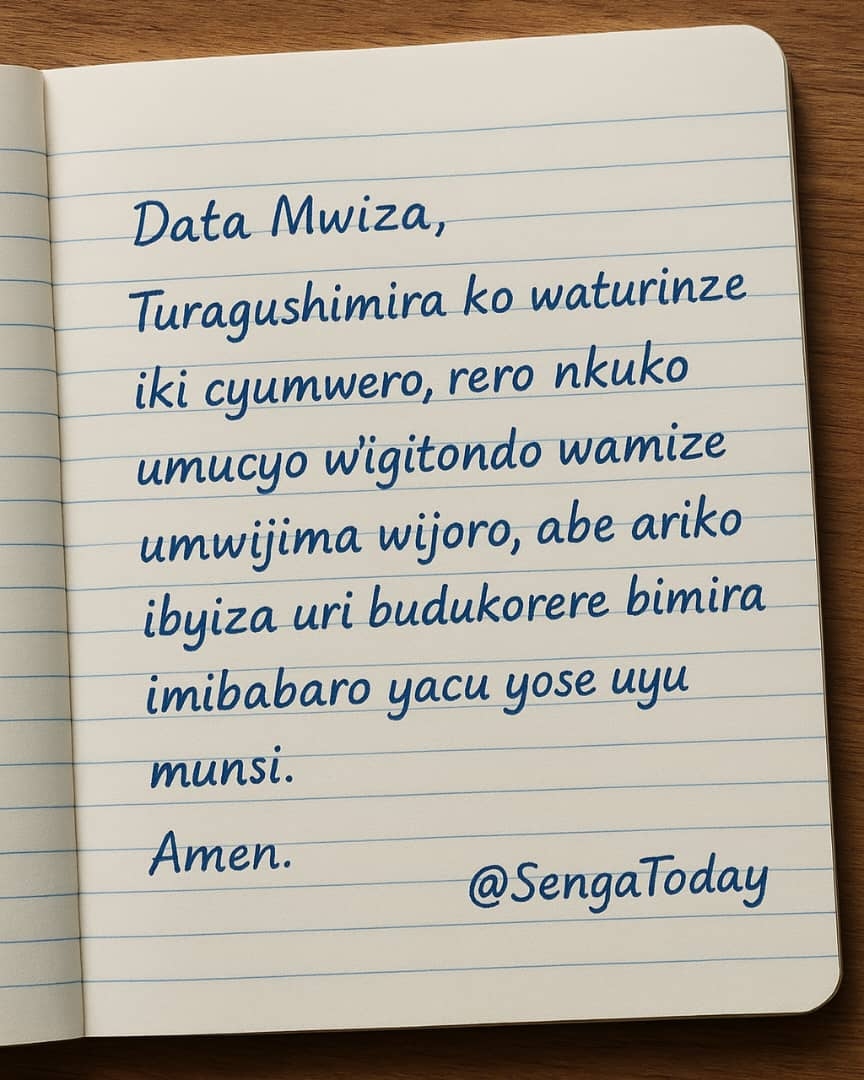 Data Mwiza,
Turagushimira ko waturinze
iki cyumwero, rero nkuko
umucyo w'igitondo wamize
umwijima wijoro, abe ariko
ibyiza uri budukorere bimira
imibabaro yacu yose uyu
munsi.
Amen.
@SengaToday